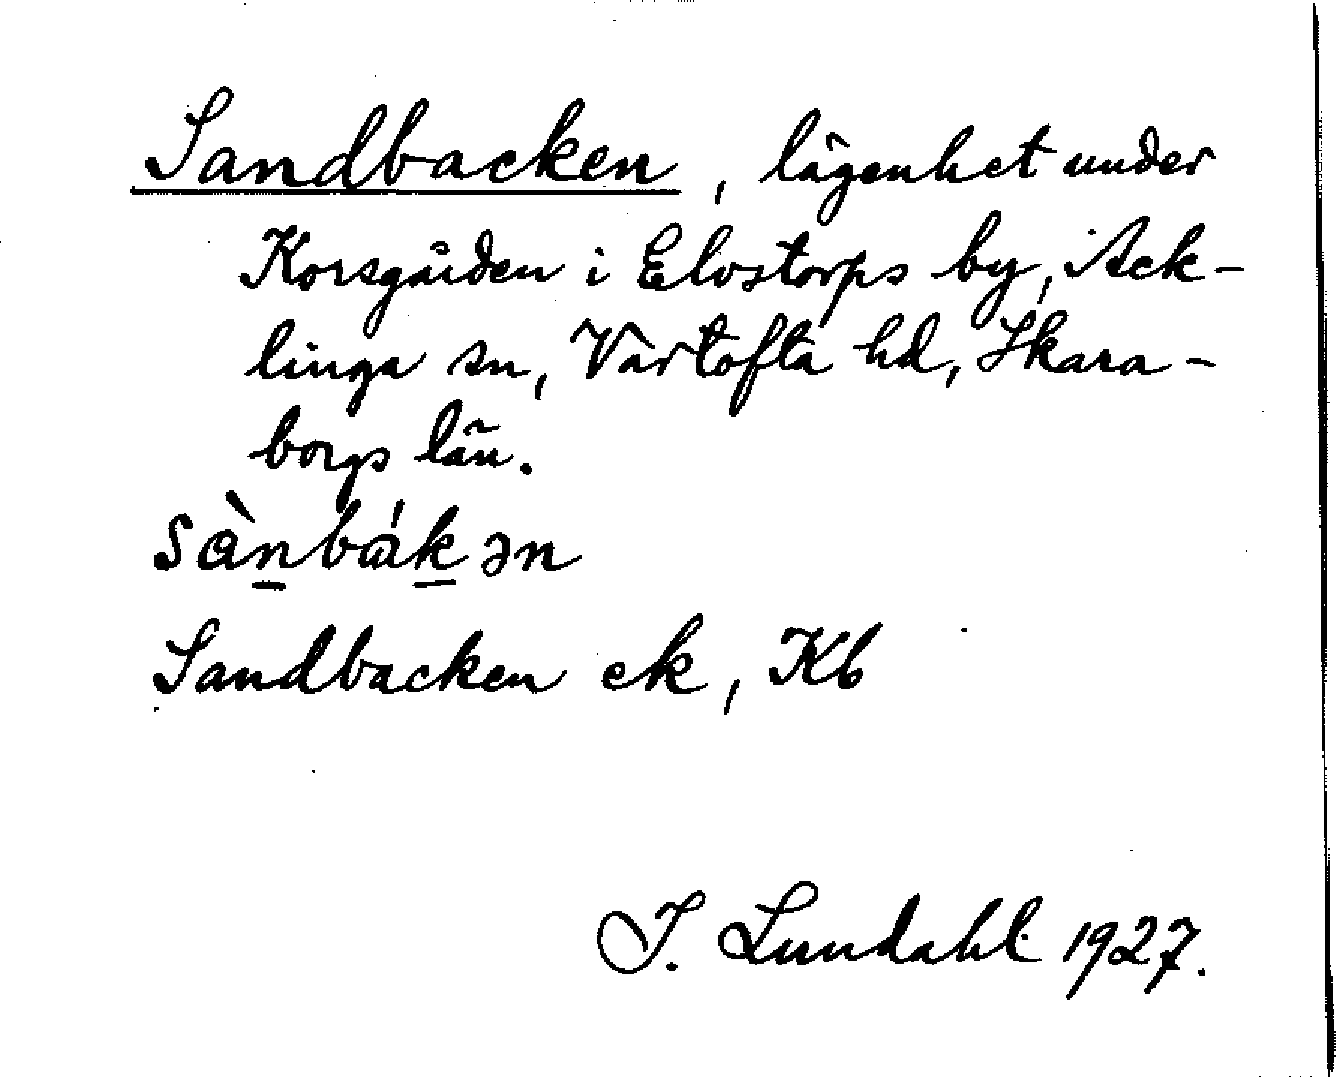 Sandbacken, lägenhet under
Korsgården i Elvstorps by, Ack-
linga sn, Vartofta hd, Skara-
borgs län.
sàn̲bák̲ən
Sandbacken ek, Kb
I. Lundahl 1927.